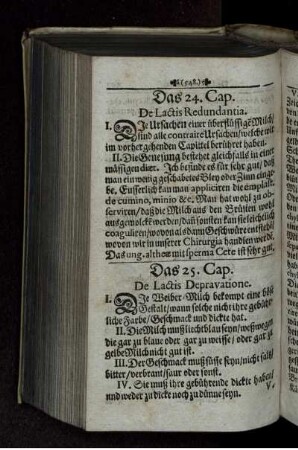 (598.)
Das 24. Cap.
De Lactis Redundantia.
I. Die Ursachen einer überflüssige Milch/
sind alle contraire Ursachen/welche wir
im vorher gehenden Capittel berühret haben.
II. Die Genesung bestehet gleichfalls in einer
mässigen diet. Ich befinde es für sehr gut/ daß
man ein wenig geschabetes Bley oder Zinn eingebe.
Eusserlich kan man appliciren die emplastr.
de cumino, minio &c. Man hat wohl zu ob-
serviren/ daß die Milch aus den Brüsten wohl
ausgemolckt werde/ dañ sonsten kan sie leichtlich
coaguliren/ wovon alsdann Geschwüre entstehẽ/
wovon wir in unserer Chirurgia handlen werdẽ.
Das ung. althææ mit sperma Cete ist sehr gut.
Das 25. Cap.
De Lactis Depravatione.
I. Die Weiber-Milch bekompt eine böse
Gestalt/ wann solche nicht ihre gebühr-
liche Farbe/ Geschmack und dickte hat.
II. Die Milch muß liecht blau seyn/ weßwegen
die gar zu blaue oder gar zu weisse/ oder gar zu
gelbe Milch nicht gut ist.
III. Der Geschmack muß süsse seyn/ nicht saltz
bitter/ verbrant/ saur oder sonst.
IV. Sie muß ihre gebührende dickte haben/
und weder zu dicke noch zu dünne seyn.
V.